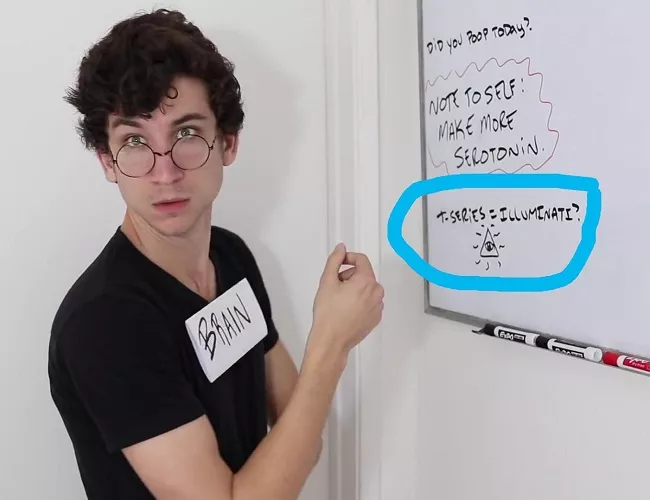 DID YOU POOP TODAY?
NOTE TO SELF:
MAKE MORE
SEROTONIN.
T-SERIES = ILLUMINATI?
BRAIN
EXPO